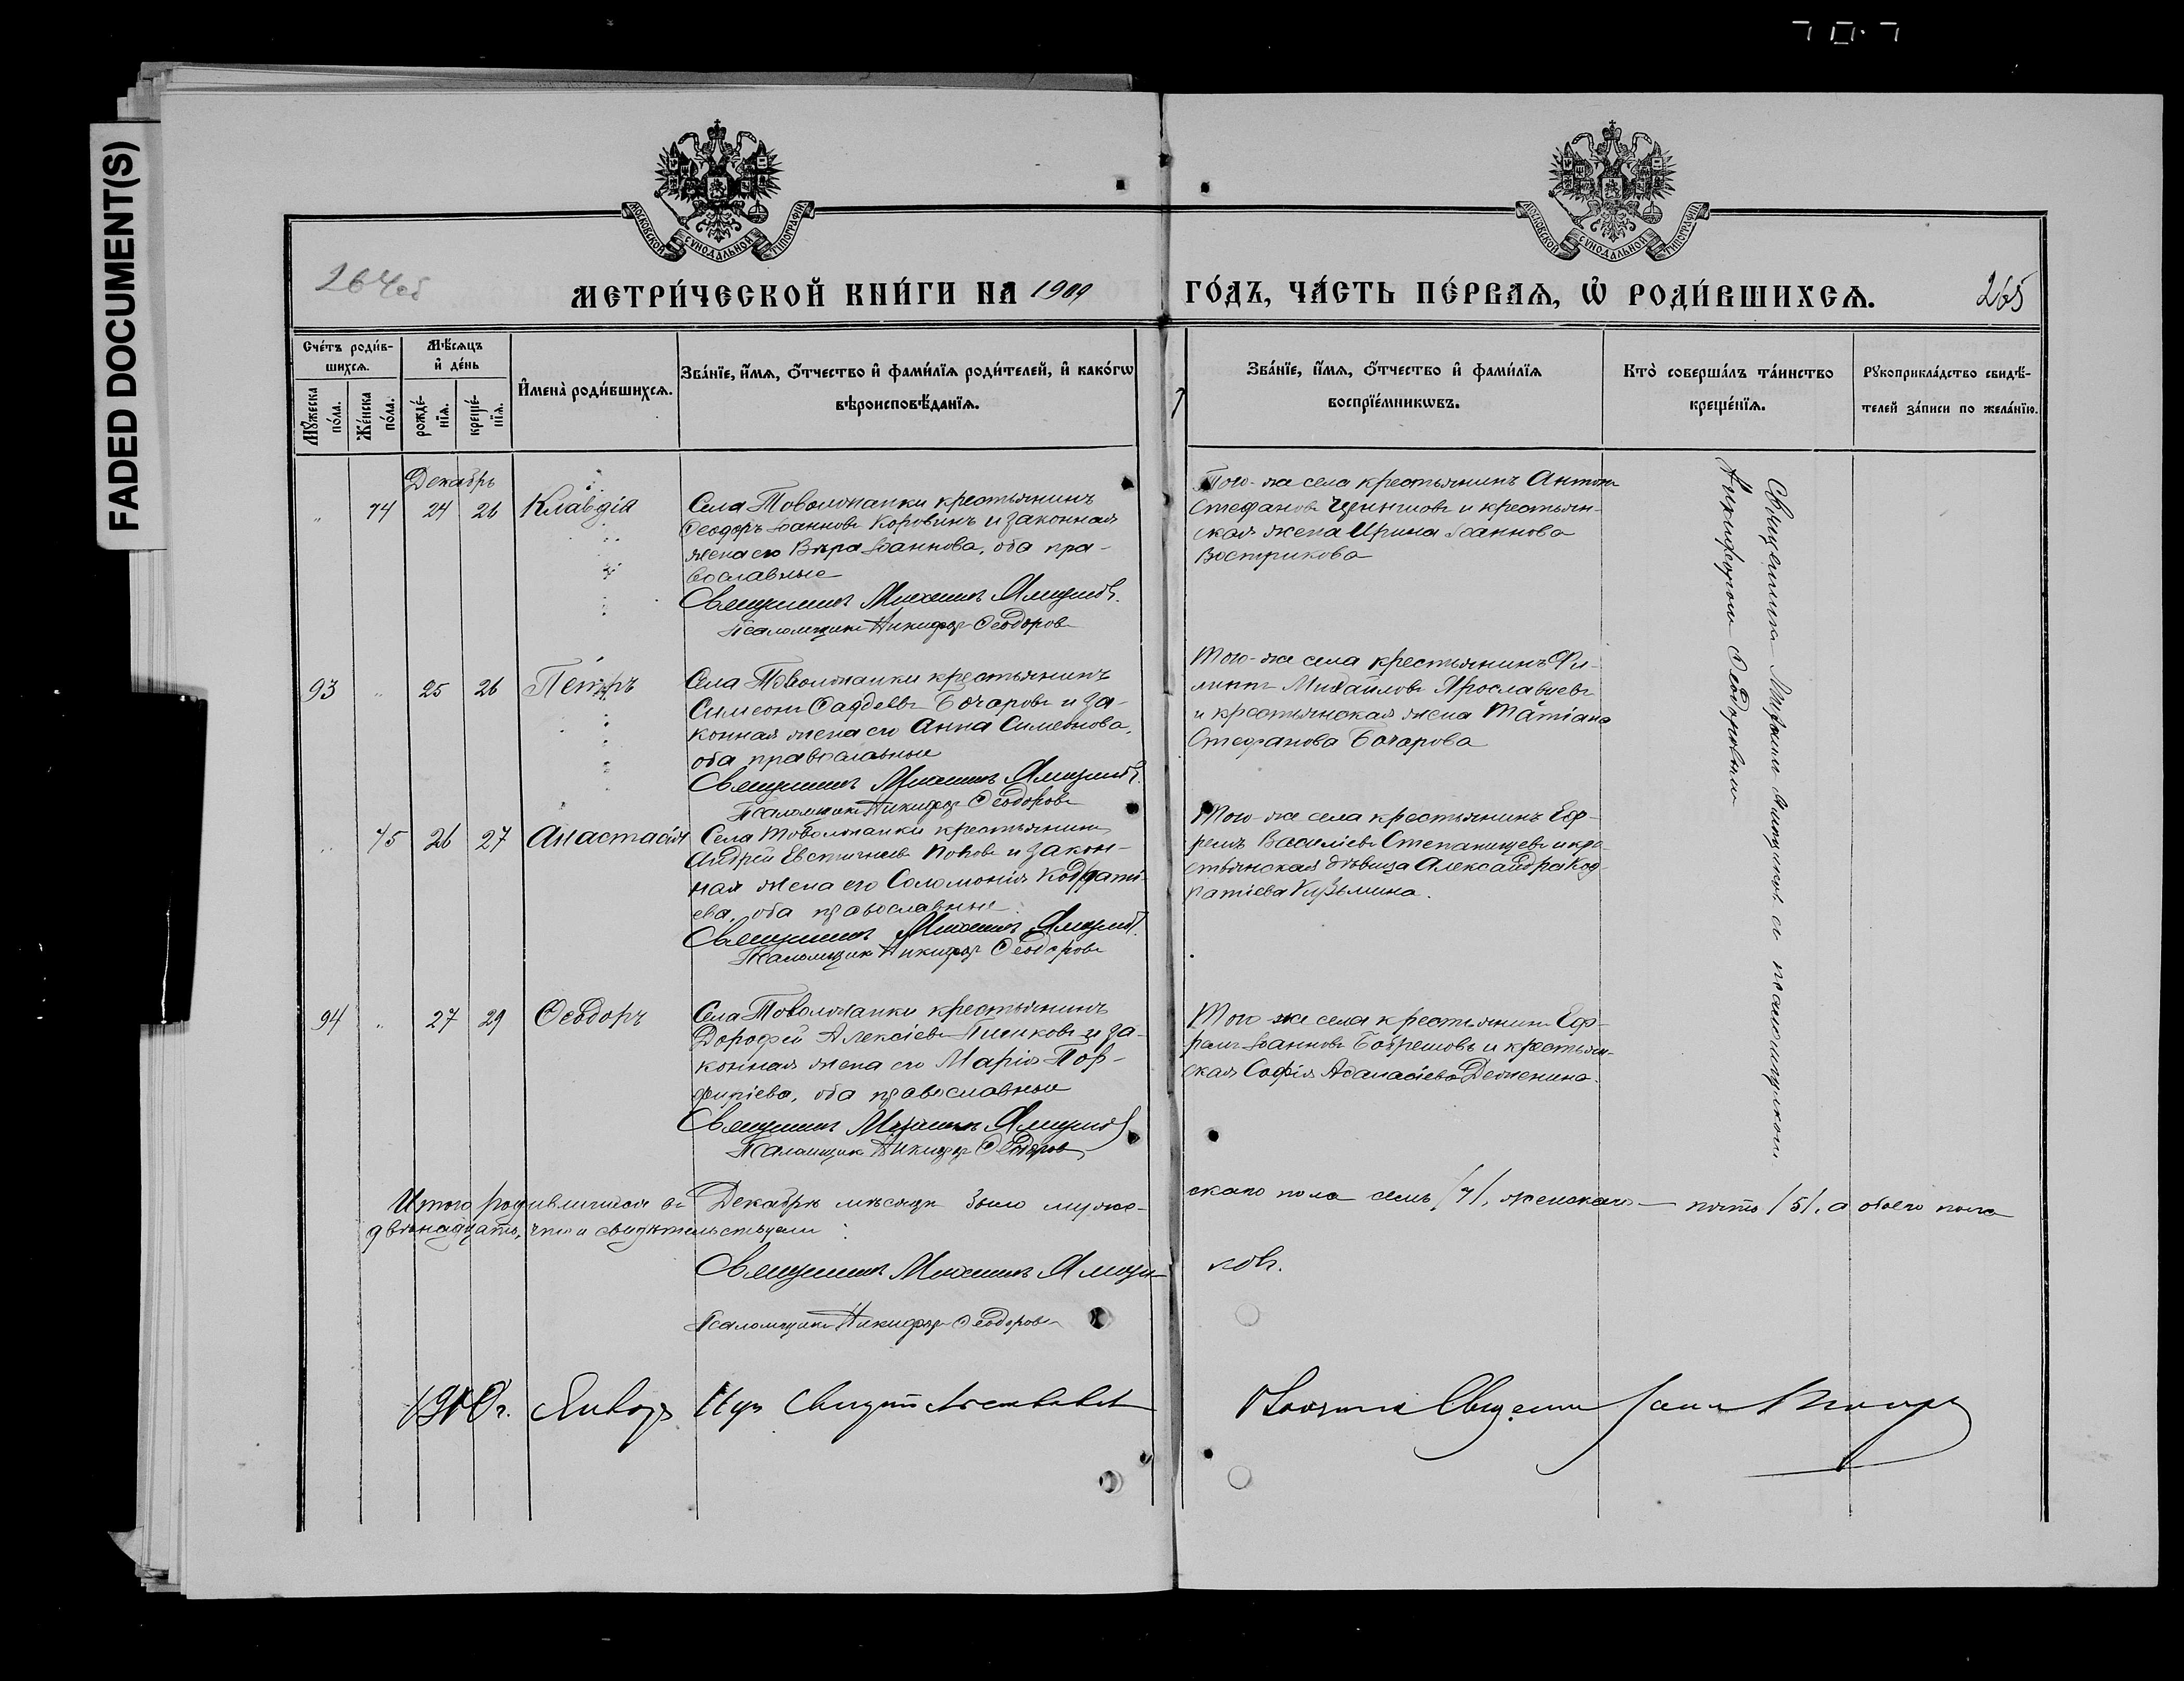 FADED DOCUMENT(S)
МОСКОВСКОЙ СѴНОДАЛЬНОЙ ТИПОГРАФІИ
МОСКОВСКОЙ СѴНОДАЛЬНОЙ ТИПОГРАФІИ
264об
МЕТРИ́ЧЕСКОЙ КНИ́ГИ НА 1909 ГО́ДЪ, ЧА́СТЬ ПЕ́РВАѦ, Ѡ РОДИ́ВШИХСѦ.
265
Сче́тъ роди́в-
шихсѧ.
Мꙋ́жеска по́ла.
Же́нска по́ла.
Мѣ́сѧцъ
и҆ де́нь
рожде́-
нїѧ.
креще́-
нїѧ.
И҆мена̀ роди́вшихсѧ.
Зва́нїе, и҆́мѧ, ѻ҆́тчество и҆ фами́лїѧ роди́телей, и҆ како́гѡ
вѣроисповѣ́данїѧ.
Зва́нїе, и҆́мѧ, ѻ҆́тчество и҆ фами́лїѧ
воспрїе́мникѡвъ.
Кто̀ соверша́лъ та́инство
креще́нїѧ.
Рꙋкоприкла́дство свидѣ́-
телей за́писи по жела́нїю.
Декабрь
" 74 24 26 Клавдія
Села Товолжанки крестьянинъ
Ѳеодоръ Іоанновъ Коровинъ и законная
жена его Вѣра Іоаннова, оба пра-
вославные
Священникъ Михаилъ
Псаломщикъ Никифоръ Ѳеодоровъ
Того-же села крестьянинъ Антонъ
Стефановъ и крестьян-
ская жена Ирина Іоаннова
Вострикова
93 " 25 26 Петръ
Села Товолжанки крестьянинъ
Симеонъ Ѳаддеевъ Бочаровъ и за-
конная жена его Анна Симеонова,
оба православные
Священникъ Михаилъ
Псаломщикъ Никифоръ Ѳеодоровъ
Того-же села крестьянинъ Фи-
липпъ Михайловъ Ярославцевъ
и крестьянская жена Татіана
Стефанова Бочарова
" 75 26 27 Анастасія
Села Товолжанки крестьянинъ
Андрей Евстигнеевъ Поповъ и закон-
ная жена его Соломонія Кондрати-
ева, оба православные
Священникъ Михаилъ
Псаломщикъ Никифоръ Ѳеодоровъ
Того-же села крестьянинъ Еф-
ремъ Василіевъ Степанищевъ и кре-
стьянская дѣвица Александра Код-
ратіева Кузьмина.
94 " 27 29 Ѳеодоръ
Села Товолжанки крестьянинъ
Дорофей Алексіевъ и за-
конная жена его Марія Пор-
фиріева, оба православные
Священникъ Михаилъ
Псаломщикъ Никифоръ Ѳеодоровъ
Того же села крестьянинъ Еф-
ремъ Іоанновъ и крестьян-
ская Софія Аѳанасіева
Священникъ Михаилъ съ псаломщикомъ
Никифоромъ Ѳеодоровымъ
Итого родившихся въ Декабрѣ мѣсяцѣ было муже-
скаго пола семь /7/, женскаго — пять /5/, а обоего пола
двѣнадцать, что и свидѣтельствуемъ:
Священникъ Михаилъ
Псаломщикъ Никифоръ Ѳеодоровъ
1910 г. Января